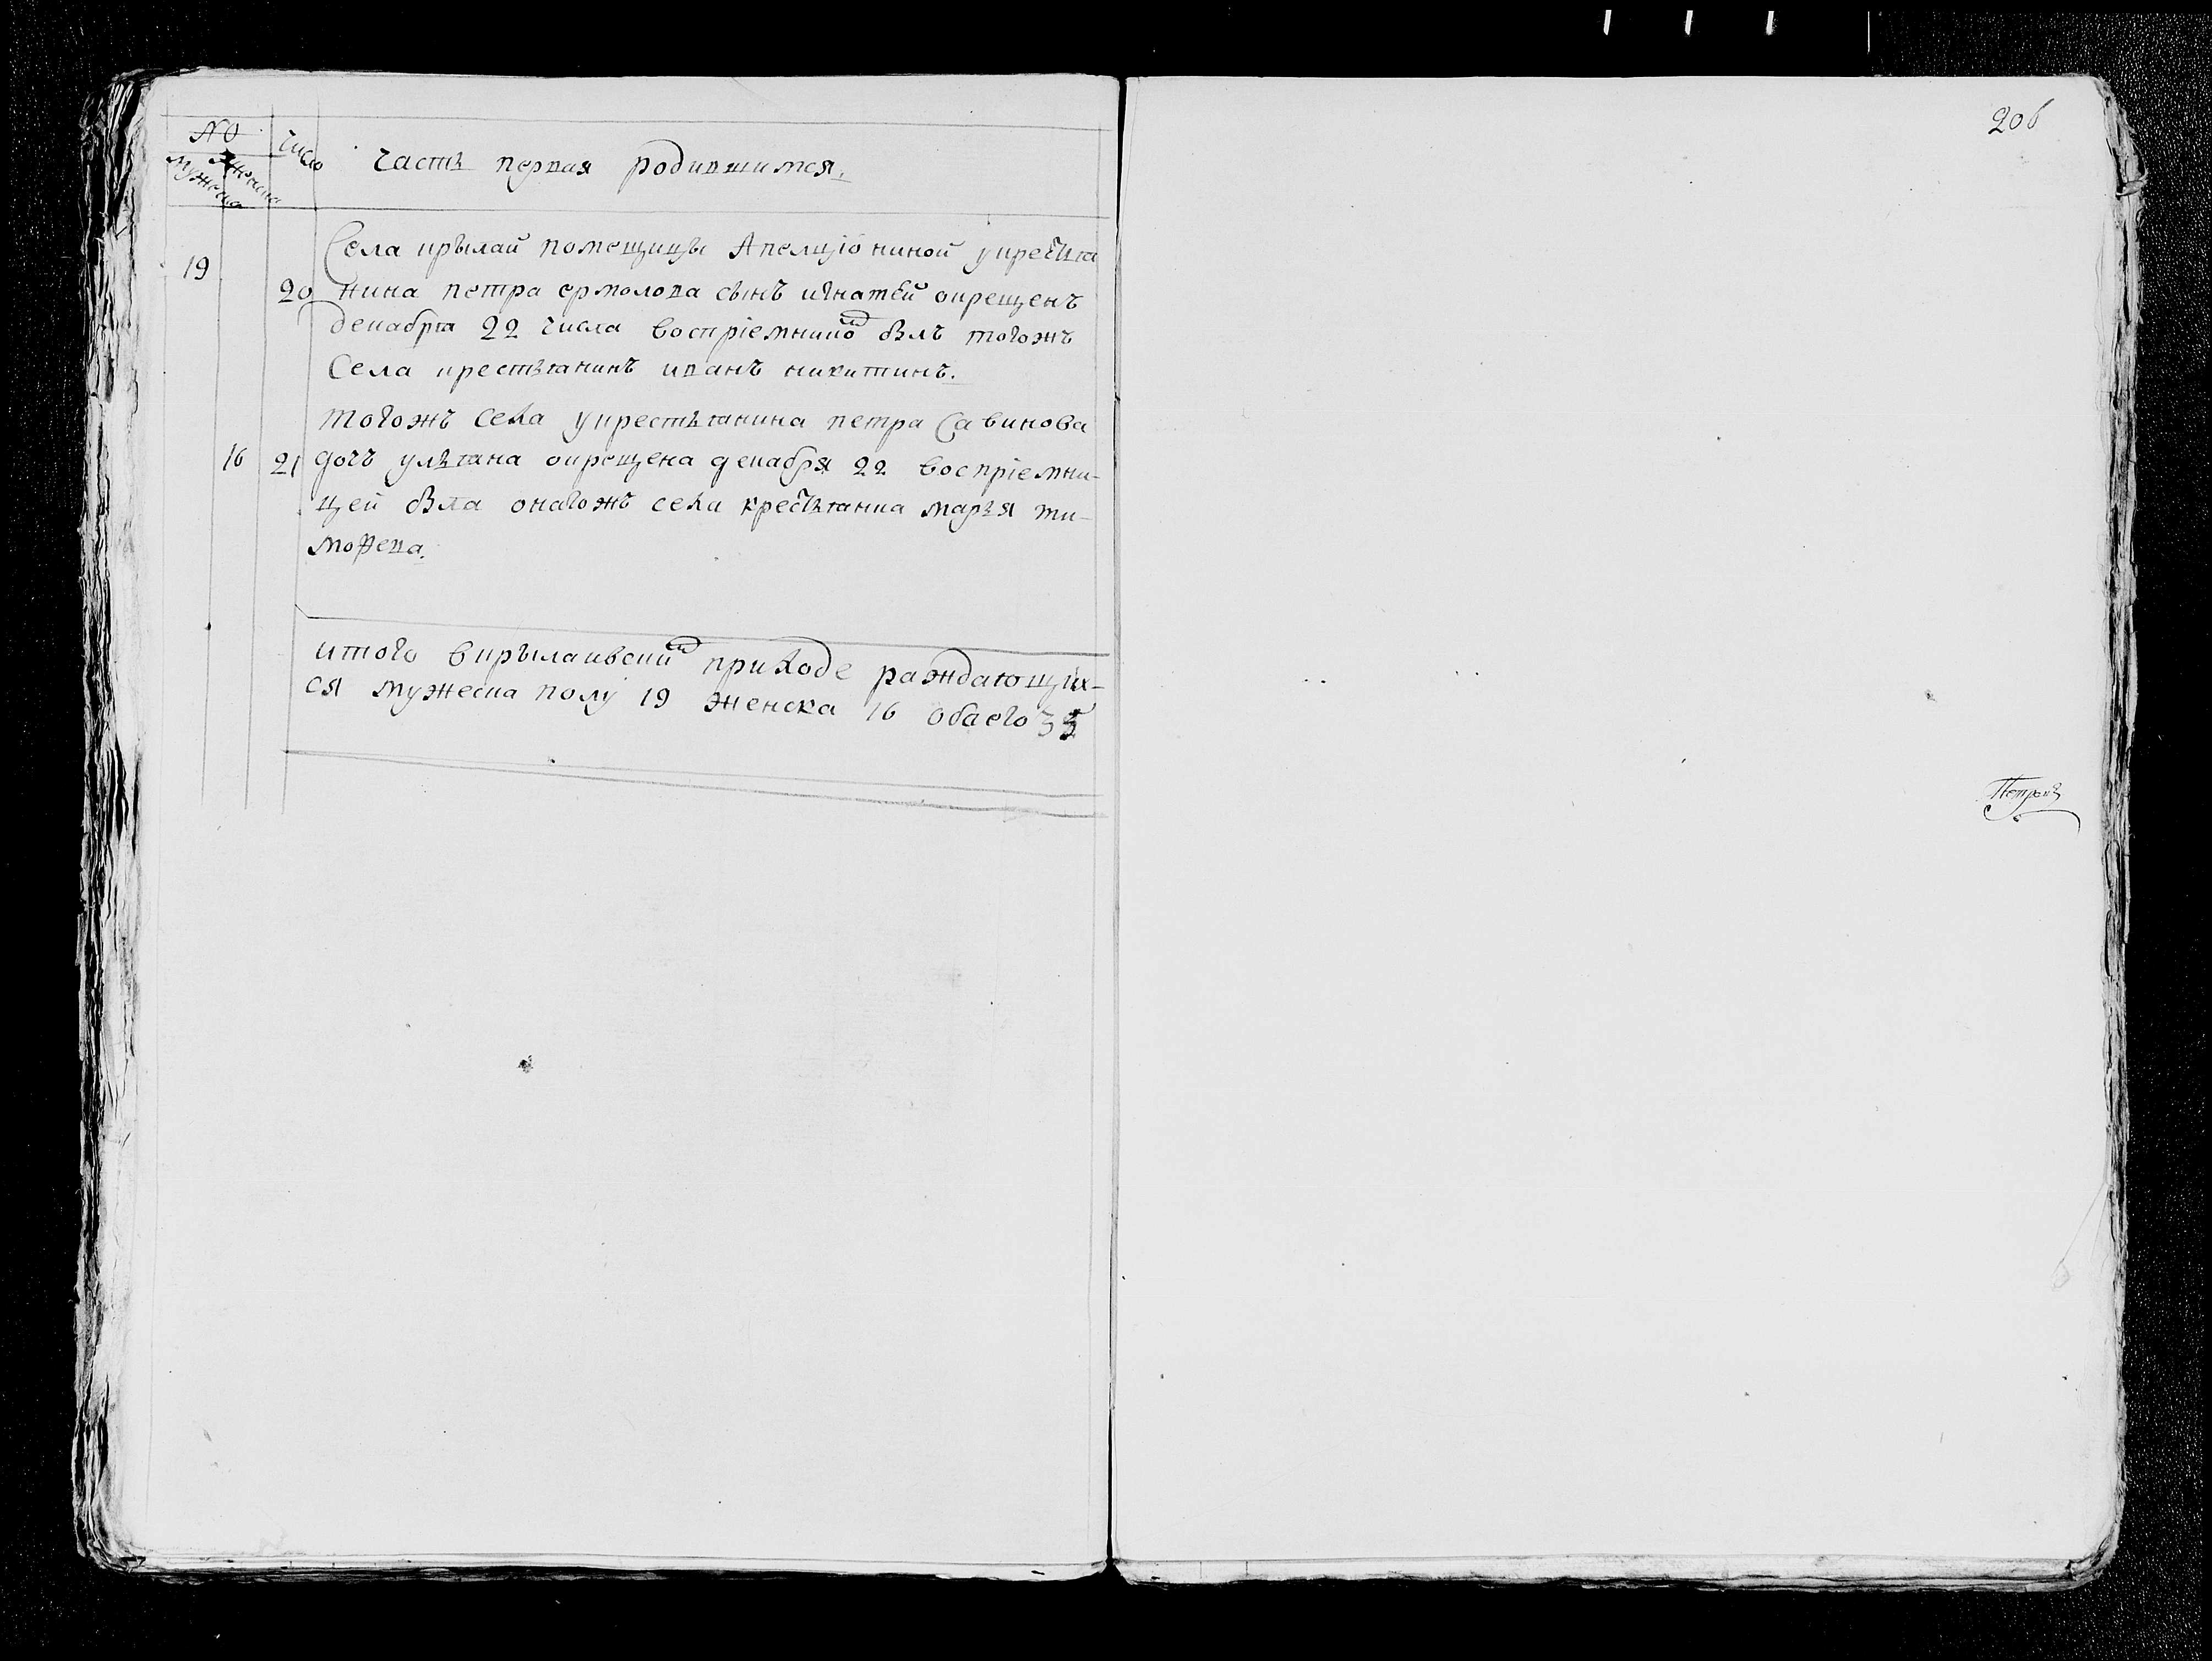 206
№
мужеска
женска
число
Часть первая родившимся.
19
20
Села крылай помещицы Апелциониной у крестья
нина петра ермолова сынъ игнатей окрещенъ
декабря 22 числа воспріемникомъ былъ тогожъ
Села крестьянинъ иванъ никитинъ.
16
21
тогожъ села у крестьянина петра Савинова
дочь ульяна окрещена декабря 22 воспріемни-
цей была оногожъ села крестьянка марья ти-
мофева.
итого в крылаивскимъ приходе раждающих-
ся мужеска полу 19 женска 16 обоего 35
Петровъ